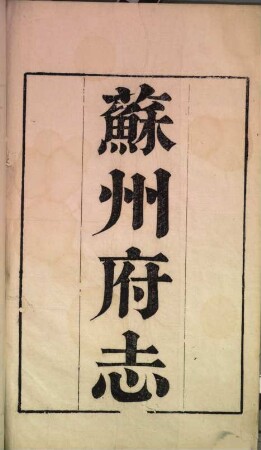 蘇州府志